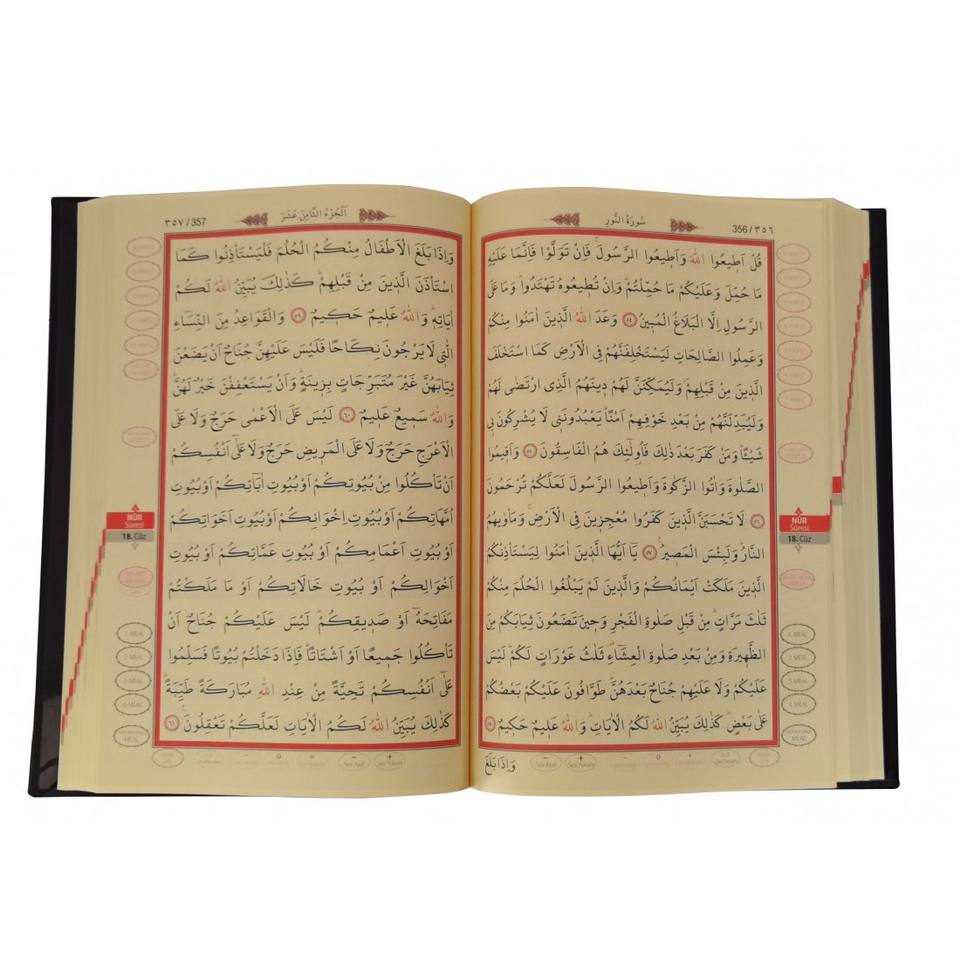 سُورَةُ النُّورِ
356/٣٥٦
قُلْ اَط۪يعُوا اللّٰهَ وَاَط۪يعُوا الرَّسُولَۚ فَاِنْ تَوَلَّوْا فَاِنَّمَا عَلَيْهِ
مَا حُمِّلَ وَعَلَيْكُمْ مَا حُمِّلْتُمْۜ وَاِنْ تُط۪يعُوهُ تَهْتَدُواۜ وَمَا عَلَى
الرَّسُولِ اِلَّا الْبَلَاغُ الْمُب۪ينُ ﴿٥٤﴾ وَعَدَ اللّٰهُ الَّذ۪ينَ اٰمَنُوا مِنْكُمْ
وَعَمِلُوا الصَّالِحَاتِ لَيَسْتَخْلِفَنَّهُمْ فِي الْاَرْضِ كَمَا اسْتَخْلَفَ
الَّذ۪ينَ مِنْ قَبْلِهِمْۖ وَلَيُمَكِّنَنَّ لَهُمْ د۪ينَهُمُ الَّذِي ارْتَضٰى لَهُمْ
وَلَيُبَدِّلَنَّهُمْ مِنْ بَعْدِ خَوْفِهِمْ اَمْنًاۜ يَعْبُدُونَن۪ي لَا يُشْرِكُونَ ب۪ي
شَيْـًٔاۜ وَمَنْ كَفَرَ بَعْدَ ذٰلِكَ فَاُو۬لٰٓئِكَ هُمُ الْفَاسِقُونَ ﴿٥٥﴾ وَاَق۪يمُوا
الصَّلٰوةَ وَاٰتُوا الزَّكٰوةَ وَاَط۪يعُوا الرَّسُولَ لَعَلَّكُمْ تُرْحَمُونَ
﴿٥٦﴾ لَا تَحْسَبَنَّ الَّذ۪ينَ كَفَرُوا مُعْجِز۪ينَ فِي الْاَرْضِۚ وَمَأْوٰيهُمُ
النَّارُۜ وَلَبِئْسَ الْمَص۪يرُ۟ ﴿٥٧﴾ يَٓا اَيُّهَا الَّذ۪ينَ اٰمَنُوا لِيَسْتَأْذِنْكُمُ
الَّذ۪ينَ مَلَكَتْ اَيْمَانُكُمْ وَالَّذ۪ينَ لَمْ يَبْلُغُوا الْحُلُمَ مِنْكُمْ
ثَلٰثَ مَرَّاتٍۜ مِنْ قَبْلِ صَلٰوةِ الْفَجْرِ وَح۪ينَ تَضَعُونَ ثِيَابَكُمْ مِنَ
الظَّه۪يرَةِ وَمِنْ بَعْدِ صَلٰوةِ الْعِشَٓاءِ۠ ثَلٰثُ عَوْرَاتٍ لَكُمْۜ لَيْسَ
عَلَيْكُمْ وَلَا عَلَيْهِمْ جُنَاحٌ بَعْدَهُنَّۜ طَوَّافُونَ عَلَيْكُمْ بَعْضُكُمْ
عَلٰى بَعْضٍۜ كَذٰلِكَ يُبَيِّنُ اللّٰهُ لَكُمُ الْاٰيَاتِۜ وَاللّٰهُ عَل۪يمٌ حَك۪يمٌ ﴿٥٨﴾
وَاِذَا بَلَغَ
NÛR
Sûresi
18. Cüz
1. MEAL
2. MEAL
3. MEAL
4. MEAL
اَلْجُزْءُ الثَّامِنَ عَشَرَ
٣٥٧/357
وَاِذَا بَلَغَ الْاَطْفَالُ مِنْكُمُ الْحُلُمَ فَلْيَسْتَأْذِنُوا كَمَا
اسْتَأْذَنَ الَّذ۪ينَ مِنْ قَبْلِهِمْۜ كَذٰلِكَ يُبَيِّنُ اللّٰهُ لَكُمْ
اٰيَاتِه۪ۜ وَاللّٰهُ عَل۪يمٌ حَك۪يمٌ ﴿٥٩﴾ وَالْقَوَاعِدُ مِنَ النِّسَٓاءِ
الّٰت۪ي لَا يَرْجُونَ نِكَاحًا فَلَيْسَ عَلَيْهِنَّ جُنَاحٌ اَنْ يَضَعْنَ
ثِيَابَهُنَّ غَيْرَ مُتَبَرِّجَاتٍ بِز۪ينَةٍۜ وَاَنْ يَسْتَعْفِفْنَ خَيْرٌ لَهُنَّۜ
وَاللّٰهُ سَم۪يعٌ عَل۪يمٌ ﴿٦٠﴾ لَيْسَ عَلَى الْاَعْمٰى حَرَجٌ وَلَا عَلَى
الْاَعْرَجِ حَرَجٌ وَلَا عَلَى الْمَر۪يضِ حَرَجٌ وَلَا عَلٰٓى اَنْفُسِكُمْ
اَنْ تَأْكُلُوا مِنْ بُيُوتِكُمْ اَوْ بُيُوتِ اٰبَٓائِكُمْ اَوْ بُيُوتِ
اُمَّهَاتِكُمْ اَوْ بُيُوتِ اِخْوَانِكُمْ اَوْ بُيُوتِ اَخَوَاتِكُمْ
اَوْ بُيُوتِ اَعْمَامِكُمْ اَوْ بُيُوتِ عَمَّاتِكُمْ اَوْ بُيُوتِ
اَخْوَالِكُمْ اَوْ بُيُوتِ خَالَاتِكُمْ اَوْ مَا مَلَكْتُمْ
مَفَاتِحَهُٓ اَوْ صَد۪يقِكُمْۜ لَيْسَ عَلَيْكُمْ جُنَاحٌ اَنْ
تَأْكُلُوا جَم۪يعًا اَوْ اَشْتَاتًاۜ فَاِذَا دَخَلْتُمْ بُيُوتًا فَسَلِّمُوا
عَلٰٓى اَنْفُسِكُمْ تَحِيَّةً مِنْ عِنْدِ اللّٰهِ مُبَارَكَةً طَيِّبَةًۜ
كَذٰلِكَ يُبَيِّنُ اللّٰهُ لَكُمُ الْاٰيَاتِ لَعَلَّكُمْ تَعْقِلُونَ۟ ﴿٦١﴾
NÛR
Sûresi
18. Cüz
1. MEAL
2. MEAL
3. MEAL
4. MEAL